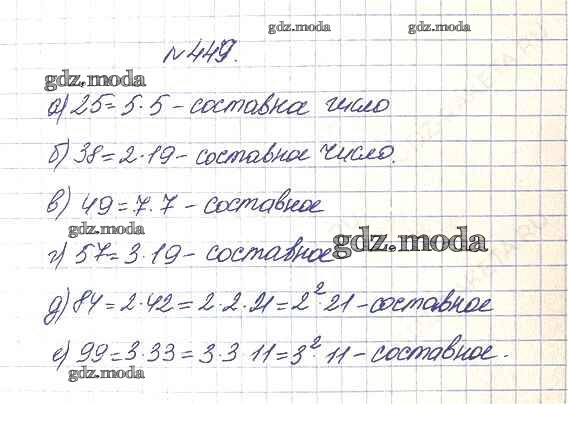 gdz.moda gdz.moda
№449.
gdz.moda
а) 25=5·5 - составное число
б) 38=2·19 - составное число.
в) 49=7·7 - составное
gdz.moda
г) 57=3·19 - составное
gdz.moda
д) 84=2·42=2·2·21=2²·21 - составное
е) 99=3·33=3·3·11=3²·11 - составное.
gdz.moda